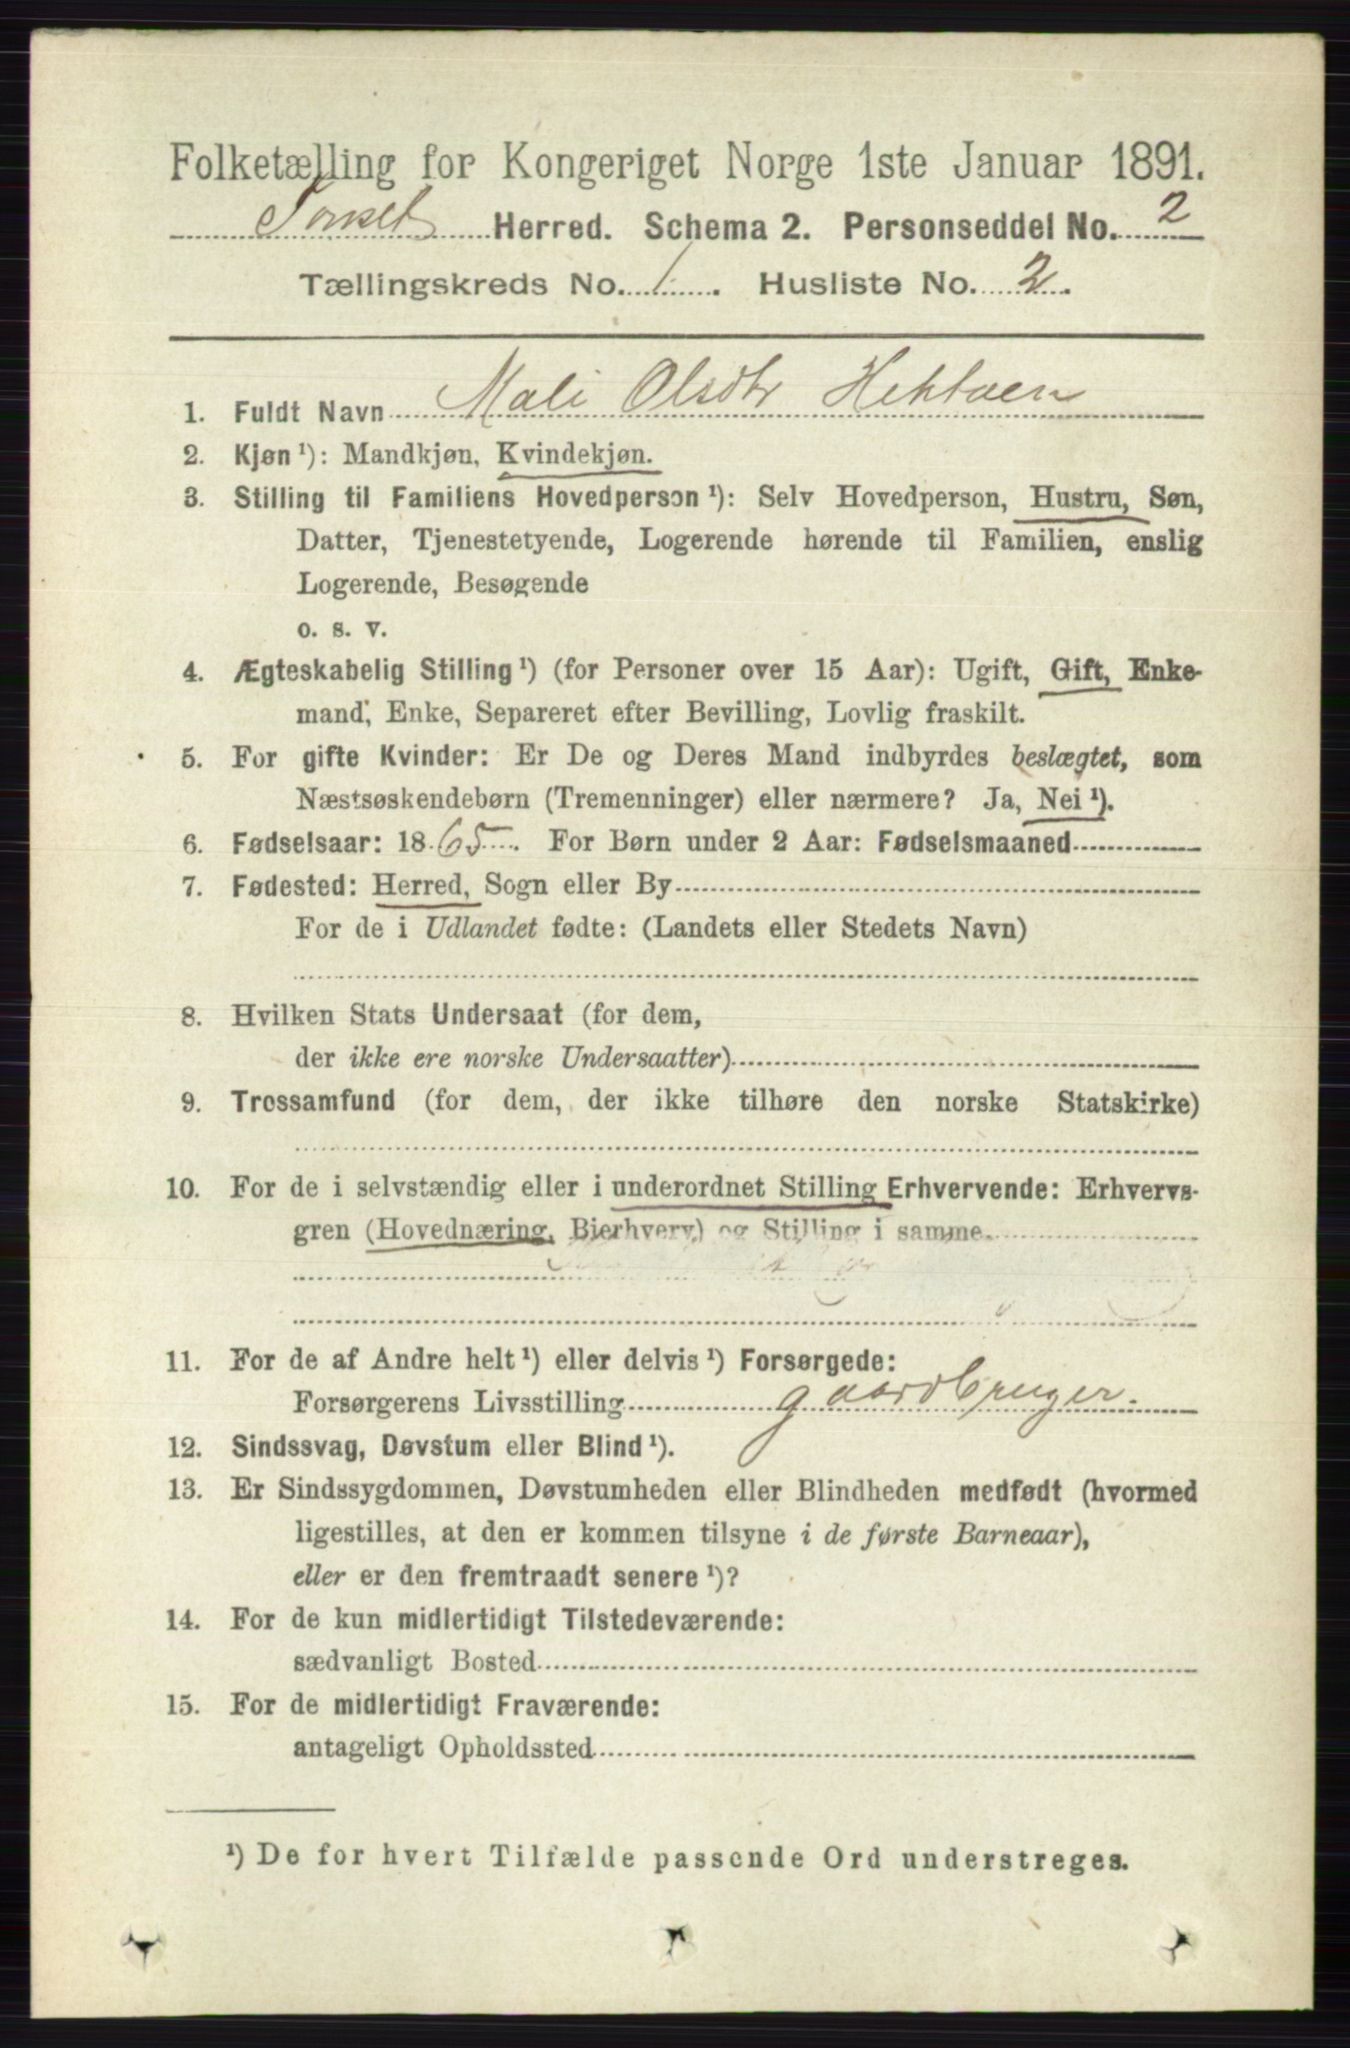 Folketælling for Kongeriget Norge 1ste Januar 1891.
Herred. Schema 2. Personseddel No. 2
Tællingskreds No. 1. Husliste No. 2.
1. Fuldt Navn Mali Olsdtr Hektoen
2. Kjøn ¹): Mandkjøn, Kvindekjøn.
3. Stilling til Familiens Hovedperson ¹): Selv Hovedperson, Hustru, Søn,
Datter, Tjenestetyende, Logerende hørende til Familien, enslig
Logerende, Besøgende
o. s. v.
4. Ægteskabelig Stilling ¹) (for Personer over 15 Aar): Ugift, Gift, Enke-
mand, Enke, Separeret efter Bevilling, Lovlig fraskilt.
5. For gifte Kvinder: Er De og Deres Mand indbyrdes beslægtet, som
Næstsøskendebørn (Tremenninger) eller nærmere? Ja, Nei ¹).
6. Fødselsaar: 1865. For Børn under 2 Aar: Fødselsmaaned
7. Fødested: Herred, Sogn eller By
For de i Udlandet fødte: (Landets eller Stedets Navn)
8. Hvilken Stats Undersaat (for dem,
der ikke ere norske Undersaatter)
9. Trossamfund (for dem, der ikke tilhøre den norske Statskirke)
10. For de i selvstændig eller i underordnet Stilling Erhvervende: Erhvervs-
gren (Hovednæring, Bierhverv) og Stilling i samme.
11. For de af Andre helt ¹) eller delvis ¹) Forsørgede:
Forsørgerens Livsstilling gaardbruger.
12. Sindssvag, Døvstum eller Blind ¹).
13. Er Sindssygdommen, Døvstumheden eller Blindheden medfødt (hvormed
ligestilles, at den er kommen tilsyne i de første Barneaar),
eller er den fremtraadt senere ¹)?
14. For de kun midlertidigt Tilstedeværende:
sædvanligt Bosted
15. For de midlertidigt Fraværende:
antageligt Opholdssted
¹) De for hvert Tilfælde passende Ord understreges.